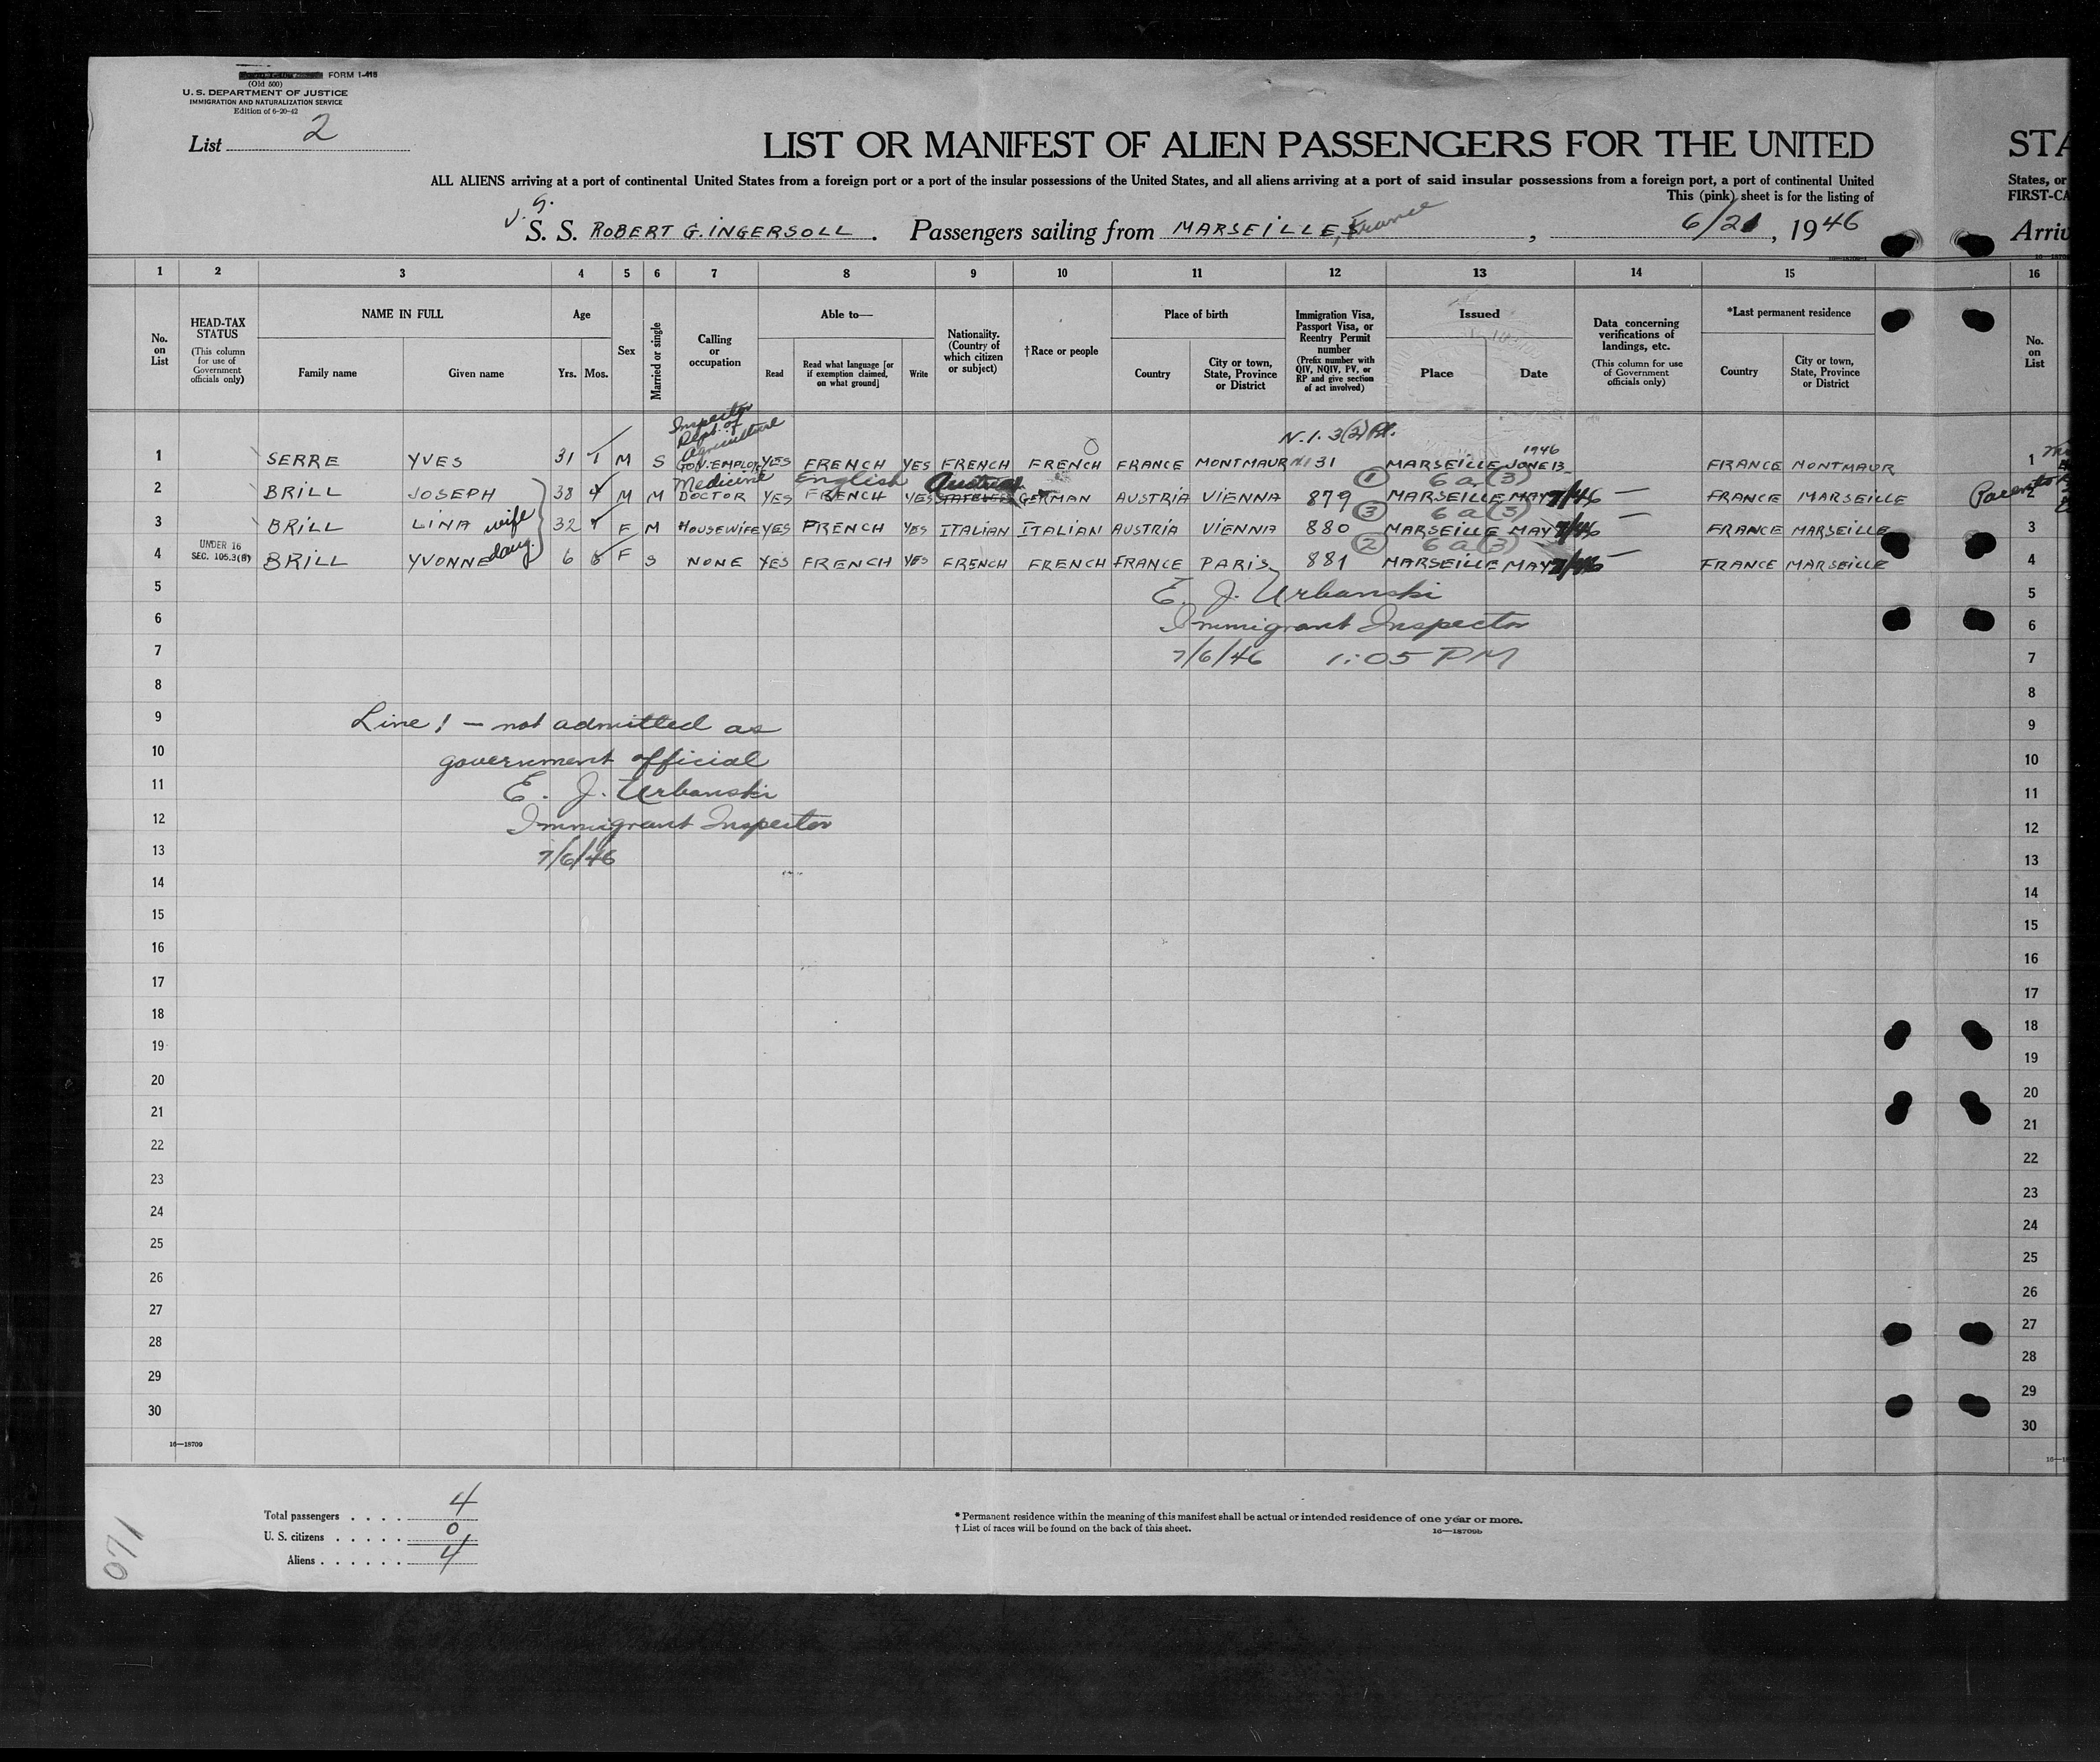 FORM I-418
(Old 500)
U. S. DEPARTMENT OF JUSTICE
IMMIGRATION AND NATURALIZATION SERVICE
Edition of 6-20-42
List 2
LIST OR MANIFEST OF ALIEN PASSENGERS FOR THE UNITED
STA
ALL ALIENS arriving at a port of continental United States from a foreign port or a port of the insular possessions of the United States, and all aliens arriving at a port of said insular possessions from a foreign port, a port of continental United
States, or
This (pink) sheet is for the listing of
FIRST-CA
S. S. ROBERT G. INGERSOLL . Passengers sailing from MARSEILLES, France , 6/21, 1946
Arriv
1 2 3 4 5 6 7 8 9 10 11 12 13 14 15 16
No. on List
HEAD-TAX STATUS
(This column for use of Government officials only)
NAME IN FULL
Family name
Given name
Age
Yrs. Mos.
Sex
Married or single
Calling or occupation
Able to—
Read
Read what language [or if exemption claimed, on what ground]
Write
Nationality. (Country of which citizen or subject)
†Race or people
Place of birth
Country
City or town, State, Province or District
Immigration Visa, Passport Visa, or Reentry Permit number
(Prefix number with QIV, NQIV, PV, or RP and give section of act involved)
Issued
Place
Date
Data concerning verifications of landings, etc.
(This column for use of Government officials only)
*Last permanent residence
Country
City or town, State, Province or District
No. on List
Inspector
Dept. of
Agriculture
N.I. 3(2)
1946
1 SERRE YVES 31 1 M S GOV. EMPLOY YES FRENCH YES FRENCH FRENCH FRANCE MONTMAUR 31 MARSEILLE JUNE 13 FRANCE MONTMAUR 1
Medicine English Austrian 1 6 a (3)
2 BRILL JOSEPH 38 4 M M DOCTOR YES FRENCH YES STATELESS GERMAN AUSTRIA VIENNA 879 MARSEILLE MAY 7/46 — FRANCE MARSEILLE Parents 2
3 6 a (3)
3 BRILL LINA wife 32 F M HOUSEWIFE YES FRENCH YES ITALIAN ITALIAN AUSTRIA VIENNA 880 MARSEILLE MAY 7/46 — FRANCE MARSEILLE 3
UNDER 16
SEC. 105.3(B)
2 6 a (3)
4 BRILL YVONNE daug. 6 F S NONE YES FRENCH YES FRENCH FRENCH FRANCE PARIS 881 MARSEILLE MAY 7/46 — FRANCE MARSEILLE 4
5 E. J. Urbanski 5
6 Immigrant Inspector 6
7 7/6/46 1:05 PM 7
8 8
9 Line 1 — not admitted as 9
10 government official 10
11 E. J. Urbanski 11
12 Immigrant Inspector 12
13 7/6/46 13
14 14
15 15
16 16
17 17
18 18
19 19
20 20
21 21
22 22
23 23
24 24
25 25
26 26
27 27
28 28
29 29
30 30
16—18709
Total passengers . . . . 4
U. S. citizens . . . . . 0
Aliens . . . . . . 4
* Permanent residence within the meaning of this manifest shall be actual or intended residence of one year or more.
† List of races will be found on the back of this sheet.
16—18709b
071